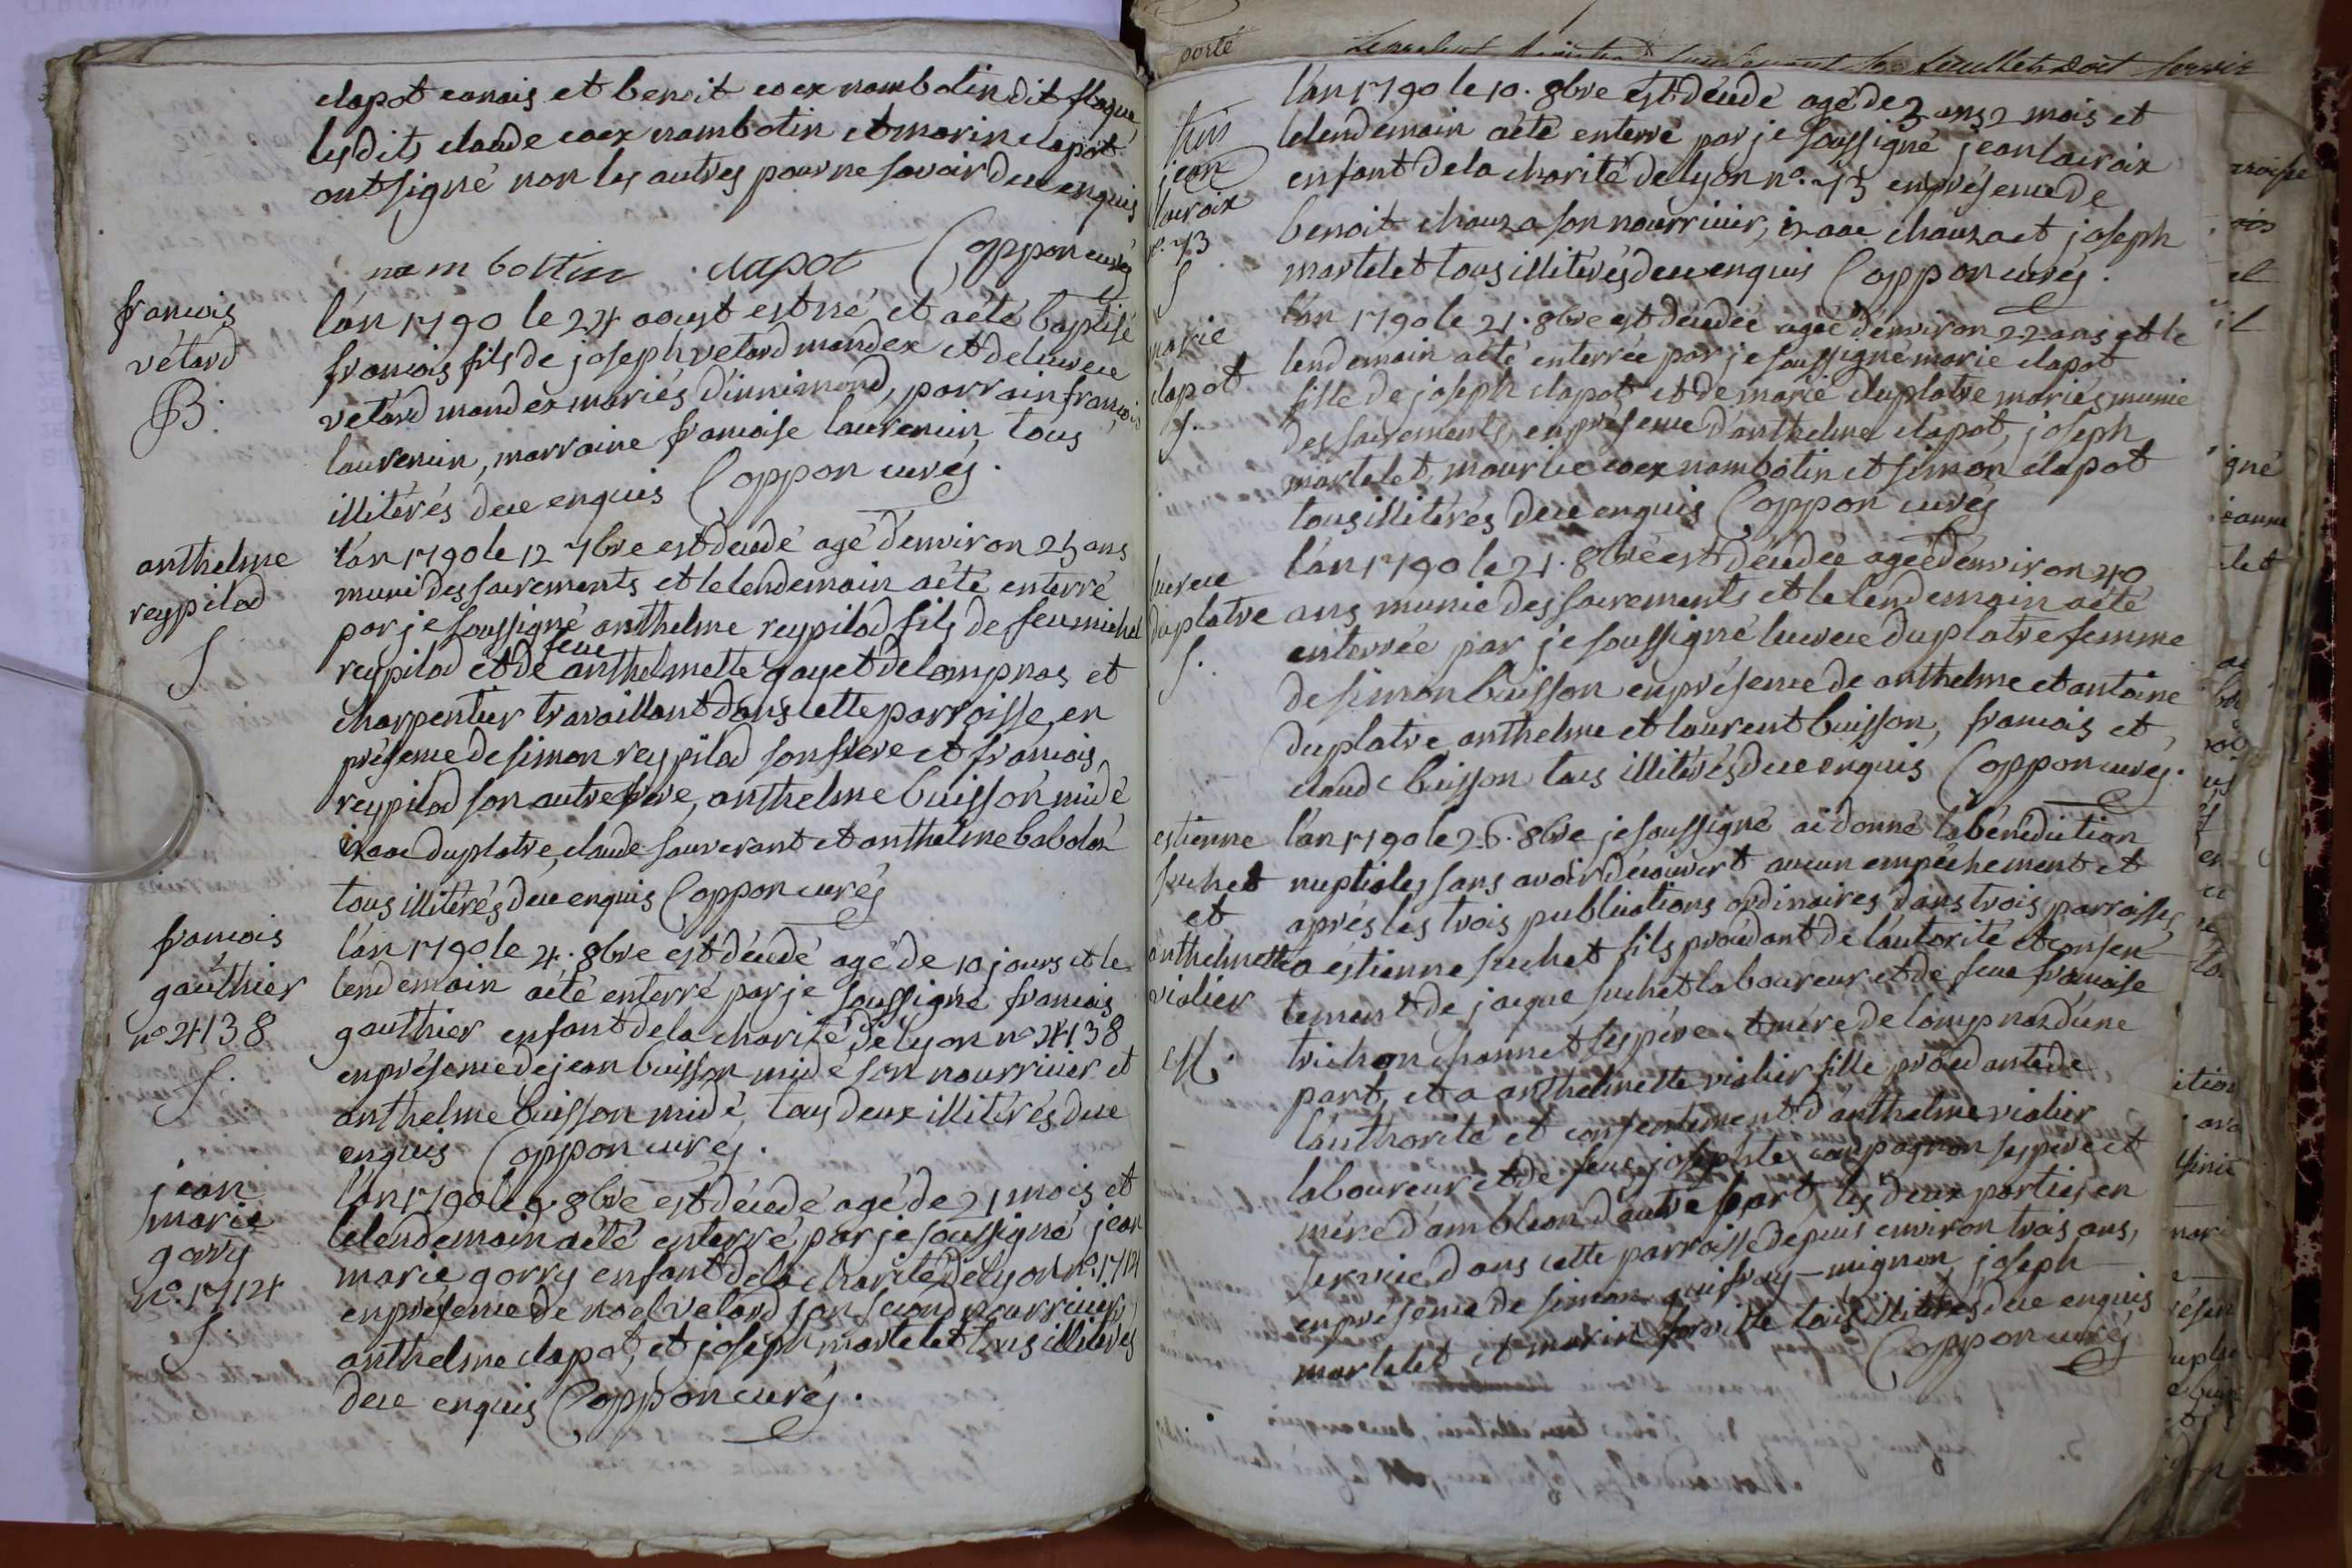 clapot canais et benoit coex nambotin dit flaque,
lesdits claude coex nambotin et marin clapot
ont signé non les autres pour ne savoir deue enquis
nambottin clapot Coppon curés
francois
vétard
B.
l'an 1790 le 24 aoust est né et aété baptisé
francois fils de joseph vetard mandex et de lucrece
vetard mandex mariés d'innimond, parrain francois
laurencin, marraine francoise laurencin tous
illitérés deue enquis Coppon curés.
anthelme
reypilad
S
l'an 1790 le 12 7bre est décédé agé d'environ 25 ans
muni des sacrements et le lendemain aété enterré
par je soussigné anthelme reypilad fils de feu michel
reypilad et de feue anthelmette gayet de lompnas et
charpentier travaillant dans cette parroisse, en
présence de simon reypilad son frere et francois
reypilad son autre frere, anthelme buisson midé
izaac duplatre, claude sauverant et anthelme babolat
tous illitérés deue enquis Coppon curés
francois
gauthier
n° 24138
S.
l'an 1790 le 4. 8bre est décédé agé de 10 jours et le
lendemain aété enterré par je soussigné francois
gauthier enfant de la charité de lyon n° 24138
en présence de jean buisson midé son nourricier et
anthelme buisson midé, tous deux illitérés deue
enquis Coppon curés.
jean
marie
gorry
n°. 1712
S.
l'an 1790 le 8bre est décédé agé de 21 mois et
le lendemain aété enterré par je soussigné jean
marie gorry enfant de la charité de lyon n°. 1712
en présence de noel velard son second nourricier,
anthelme clapot, et joseph martelet tous illitérés
deue enquis Coppon curés.
porté
feuillets doit servir
jean
lacroix
n°. 73
S
l'an 1790 le 10. 8bre est décédé agé de 3 ans 2 mois et
le lendemain aété enterré par je soussigné jean lacroix
enfant de la charité de lyon n°. 73 en présence de
benoit chauza son nourricier, izaac chauza et joseph
martelet tous illitérés deue enquis Coppon curés.
marie
clapot
S.
l'an 1790 le 21. 8bre est décédée agée d'environ 22 ans et le
lendemain aété enterrée par je soussigné marie clapot
fille de joseph clapot et de marie duplatre mariés, munie
des sacrements, en présence d'anthelme clapot, joseph
martelet, maurice coex nambotin et simon clapot
tous illitérés deue enquis Coppon curés
lucrece
duplatre
S.
l'an 1790 le 21. 8bre est décédée agée d'environ 40
ans munie des sacrements et le lendemain aété
enterrée par je soussigné lucrece duplatre femme
de simon buisson en présence de anthelme et antoine
duplatre, anthelme et laurent buisson, francois et
claude buisson tous illitérés deue enquis Coppon curés.
estienne
suchet
et
anthelmette
violier
M.
l'an 1790 le 26. 8bre je soussigné ai donné la bénédiction
nuptiales sans avoir découvert aucun empéchement et
aprés les trois publications ordinaires dans trois parroisses,
a éstienne suchet fils procédant de l'autorité et consen-
tement de jacque suchet laboureur et de feue francoise
trichon channet ses pére et mére de lompnas d'une
part, et a anthelmette violier fille procédante de
l'authorité et consentement d'anthelme violier
laboureur et de feue josephte compagnon ses pere et
mére d'ambléon d'autre part, les deux parties en
service dans cette parroisse depuis environ trois ans,
en présence de simon guifray-mignon, joseph
martelet et marin forville tous illitérés deue enquis
Coppon curés